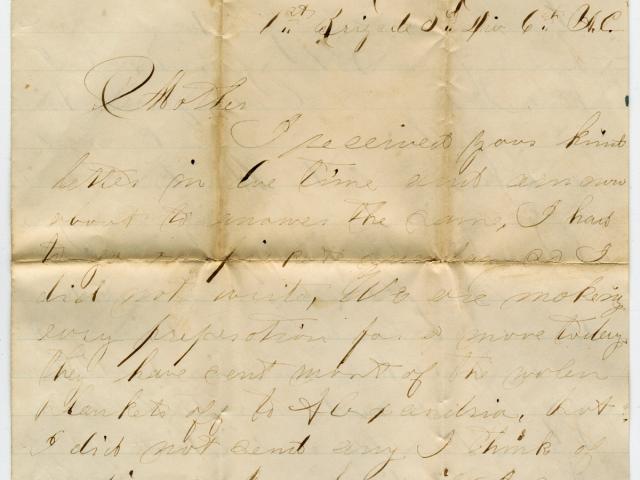 1st Brigade 3d Div 6th A.C.
D Mother
I received your kind
letter in due time and am now
about to answer the same, I had
to go on picket yesterday so I
did not write, We are making
every preperation for a move today.
they have sent most of the wolen
blankets of to Alexandria, but
I did not send any I think of